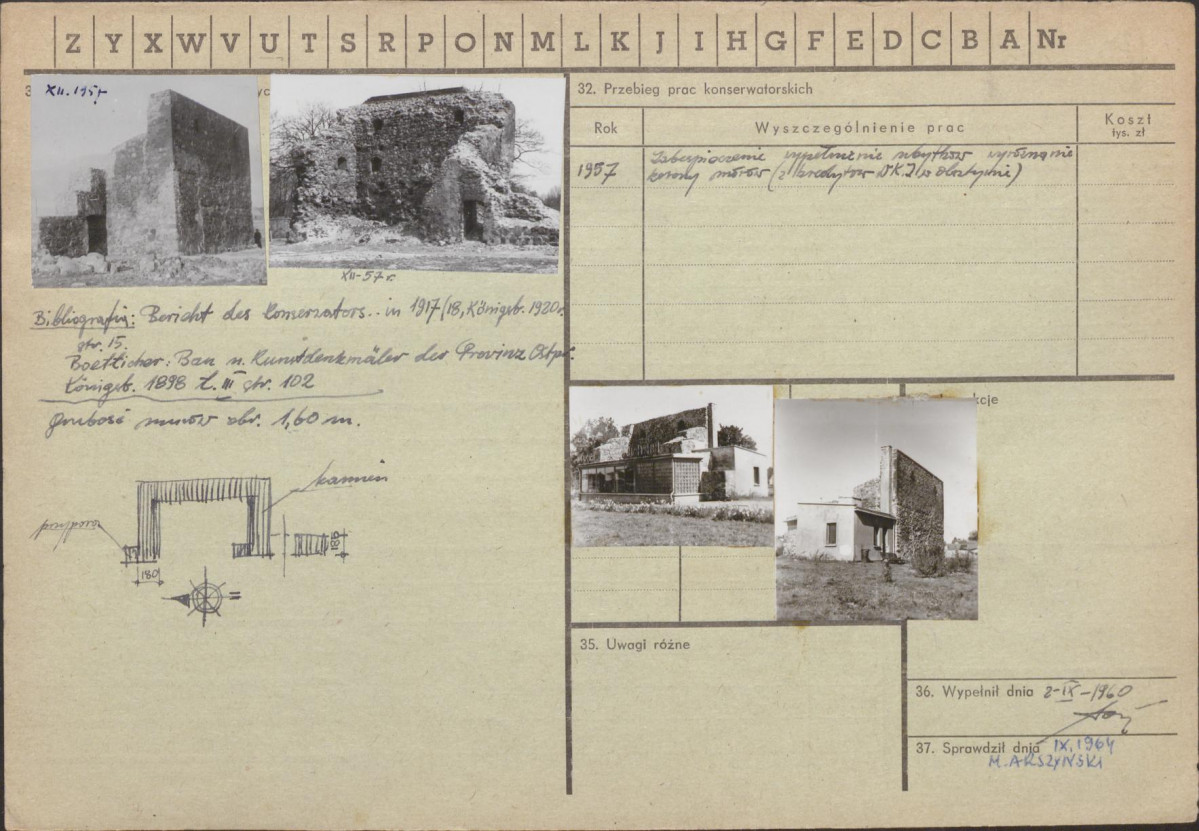 Z Y X W V U T S R P O N M L K J I H G F E D C B A Nr
XII.1957
XII-57 r.
Bibliografia: Bericht des Konserwators.. in 1917/18, Königsb. 1920r.
str. 15.
Boetticher: Bau u. Kunstdenkmäler der Provinz Ostpr.
Königsb. 1898 t. III str. 102
grubość murów ok. 1,60 m.
kamień
przypora
180
180
32. Przebieg prac konserwatorskich
Rok
Wyszczególnienie prac
Koszt
tys. zł
1957
Zabezpieczenie wypełnienie ubytków wyrównanie
korony murów (z kredytów W.K.Z w Olsztynie)
kcje
35. Uwagi różne
36. Wypełnił dnia 2-IX-1960
37. Sprawdził dnia IX.1964
M. ARSZYŃSKI